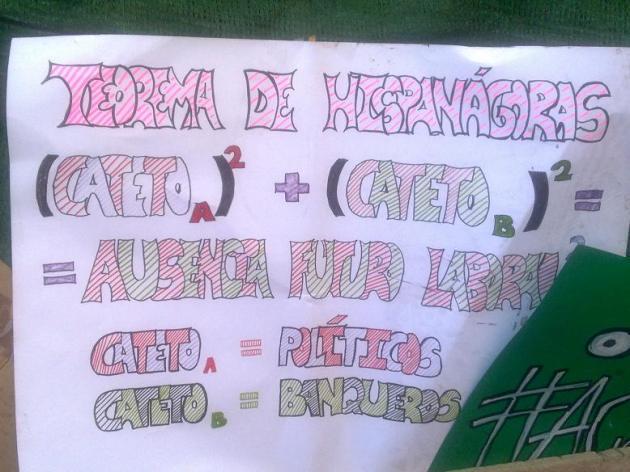 TEOREMA DE HISPANÁGORAS
(CATETO A)² + (CATETO B)² =
= AUSENCIA FUTURO LABORAL
CATETO A = POLÍTICOS
CATETO B = BANQUEROS